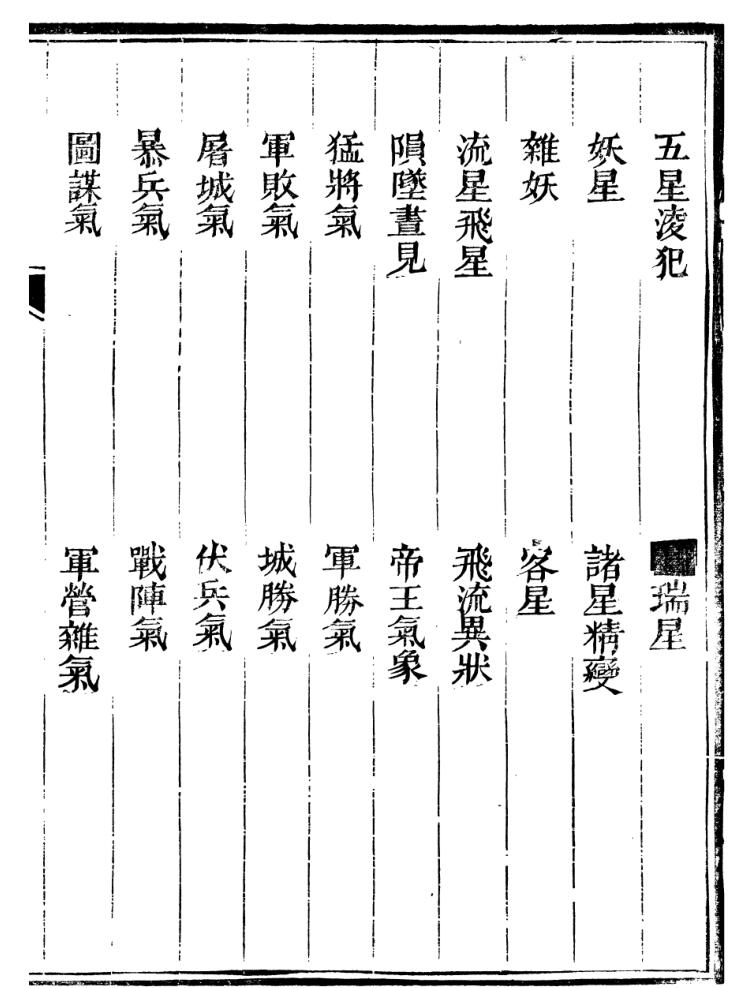 五星淩犯
瑞星
妖星
諸星精變
雜妖
客星
流星飛星
飛流異狀
隕墜晝見
帝王氣象
猛將氣
軍勝氣
軍敗氣
城勝氣
屠城氣
伏兵氣
暴兵氣
戰陣氣
圖謀氣
軍營雜氣